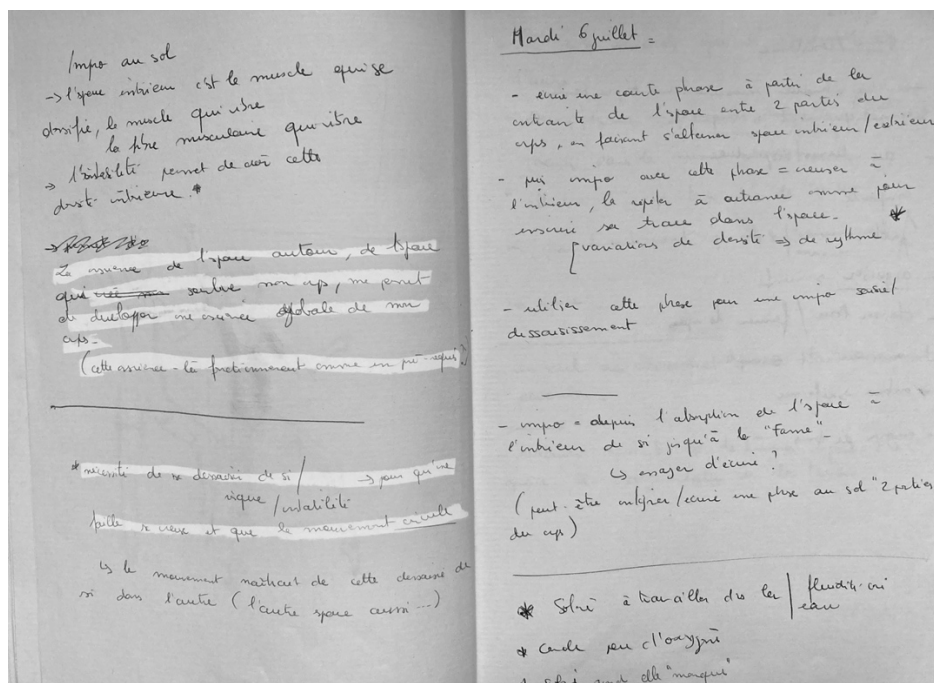 Impro au sol
-> l'espace intérieur c'est le muscle qui se
densifie, le muscle qui vibre
la fibre musculaire qui vibre
-> l' permet de créer cette
densité intérieure. *
->
La conscience de l'espace autour, de l'espace
qui semble mon corps, me permet
de développer une conscience globale de mon
corps.
(cette conscience-là fonctionnerait comme un pré-requis ?)
* nécessité de se dessaisir de soi / -> pour qu'une
risque / instabilité
faille se creuse et que le mouvement circule
↳ le mouvement naîtrait de cette dessaisie de
soi dans l'autre (l'autre espace aussi...)
Mardi 6 juillet =
- écrire une courte phrase à partir de la
contrainte de l'espace entre 2 parties du
corps, en faisant s'alterner espace intérieur/extérieur
- puis impro avec cette phrase = creuser à
l'intérieur, la répéter à outrance comme pour
inscrire sa trace dans l'espace. *
[variations de densité => de rythme
- utiliser cette phrase pour une impro saisie/
dessaisissement
- impro = depuis l'absorption de l'espace à
l'intérieur de soi jusqu'à la "fame"
↳ essayer d'écrire ?
(peut-être intégrer/écrire une phrase au sol "2 parties
du corps)
* Solo à travailler ds les | fluidité
eau
* d'oxygène
elle "manqué"